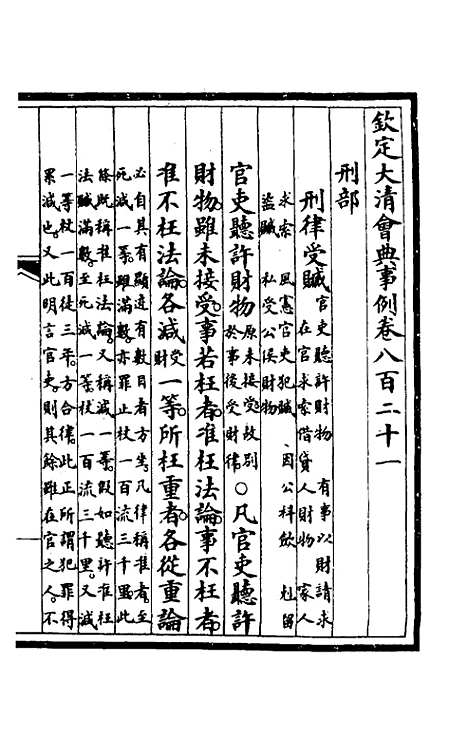 欽定大清會典事例卷八百二十一
刑部
刑律受贓 官吏聽許財物 有事以財請求
在官求索借貸人財物 家人
求索 風憲官吏犯贓 因公科斂 尅留
盜贓 私受公侯財物
官吏聽許財物 原未接受故別
於事後受財律 〇凡官吏聽許
財物雖未接受事若枉者准枉法論事不枉者
准不枉法論各減 受
財 一等所枉重者各從重論
必自其有顯迹有數目者方坐凡律稱准者至
死減一等雖滿數亦罪止杖一百流三千里此
條既稱准枉法論又稱減一等假如聽許准枉
法贓滿數至死減一等杖一百流三千里又減
一等杖一百徒三年方合律此正所謂犯罪得
累減也又此明言官吏則其餘雖在官之人不